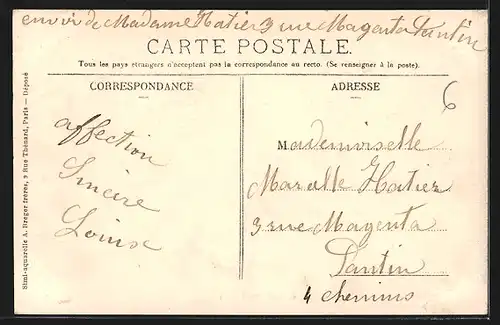 envoi de Madame Hatier 3 rue Magenta Pantin
CARTE POSTALE.
Tous les pays étrangers n'acceptent pas la correspondance au recto. (Se renseigner à la poste).
CORRESPONDANCE
ADRESSE
6
affection
Sincère
Louise
Mademoiselle
Marcelle Hatier
3 rue Magenta
Pantin
4 chemins
Simi-aquarelle A. Breger frères, 9 Rue Thénard, Paris — Déposé